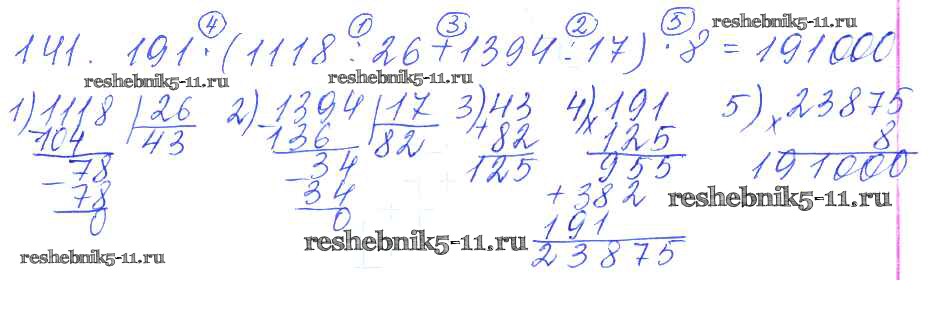 ④ ① ③ ② ⑤ reshebnik5-11.ru
141. 191 · (1118 : 26 + 1394 : 17) · 8 = 191000
reshebnik5-11.ru reshebnik5-11.ru
1) 1118 | 26 2) 1394 | 17 3) 43 4) 191 5) 23875
104 43 136 82 + 82 x 125 x 8
- 78 - 34 125 955 191000
78 34 + 382 reshebnik5-11.ru
0 0 191
reshebnik5-11.ru reshebnik5-11.ru 23875